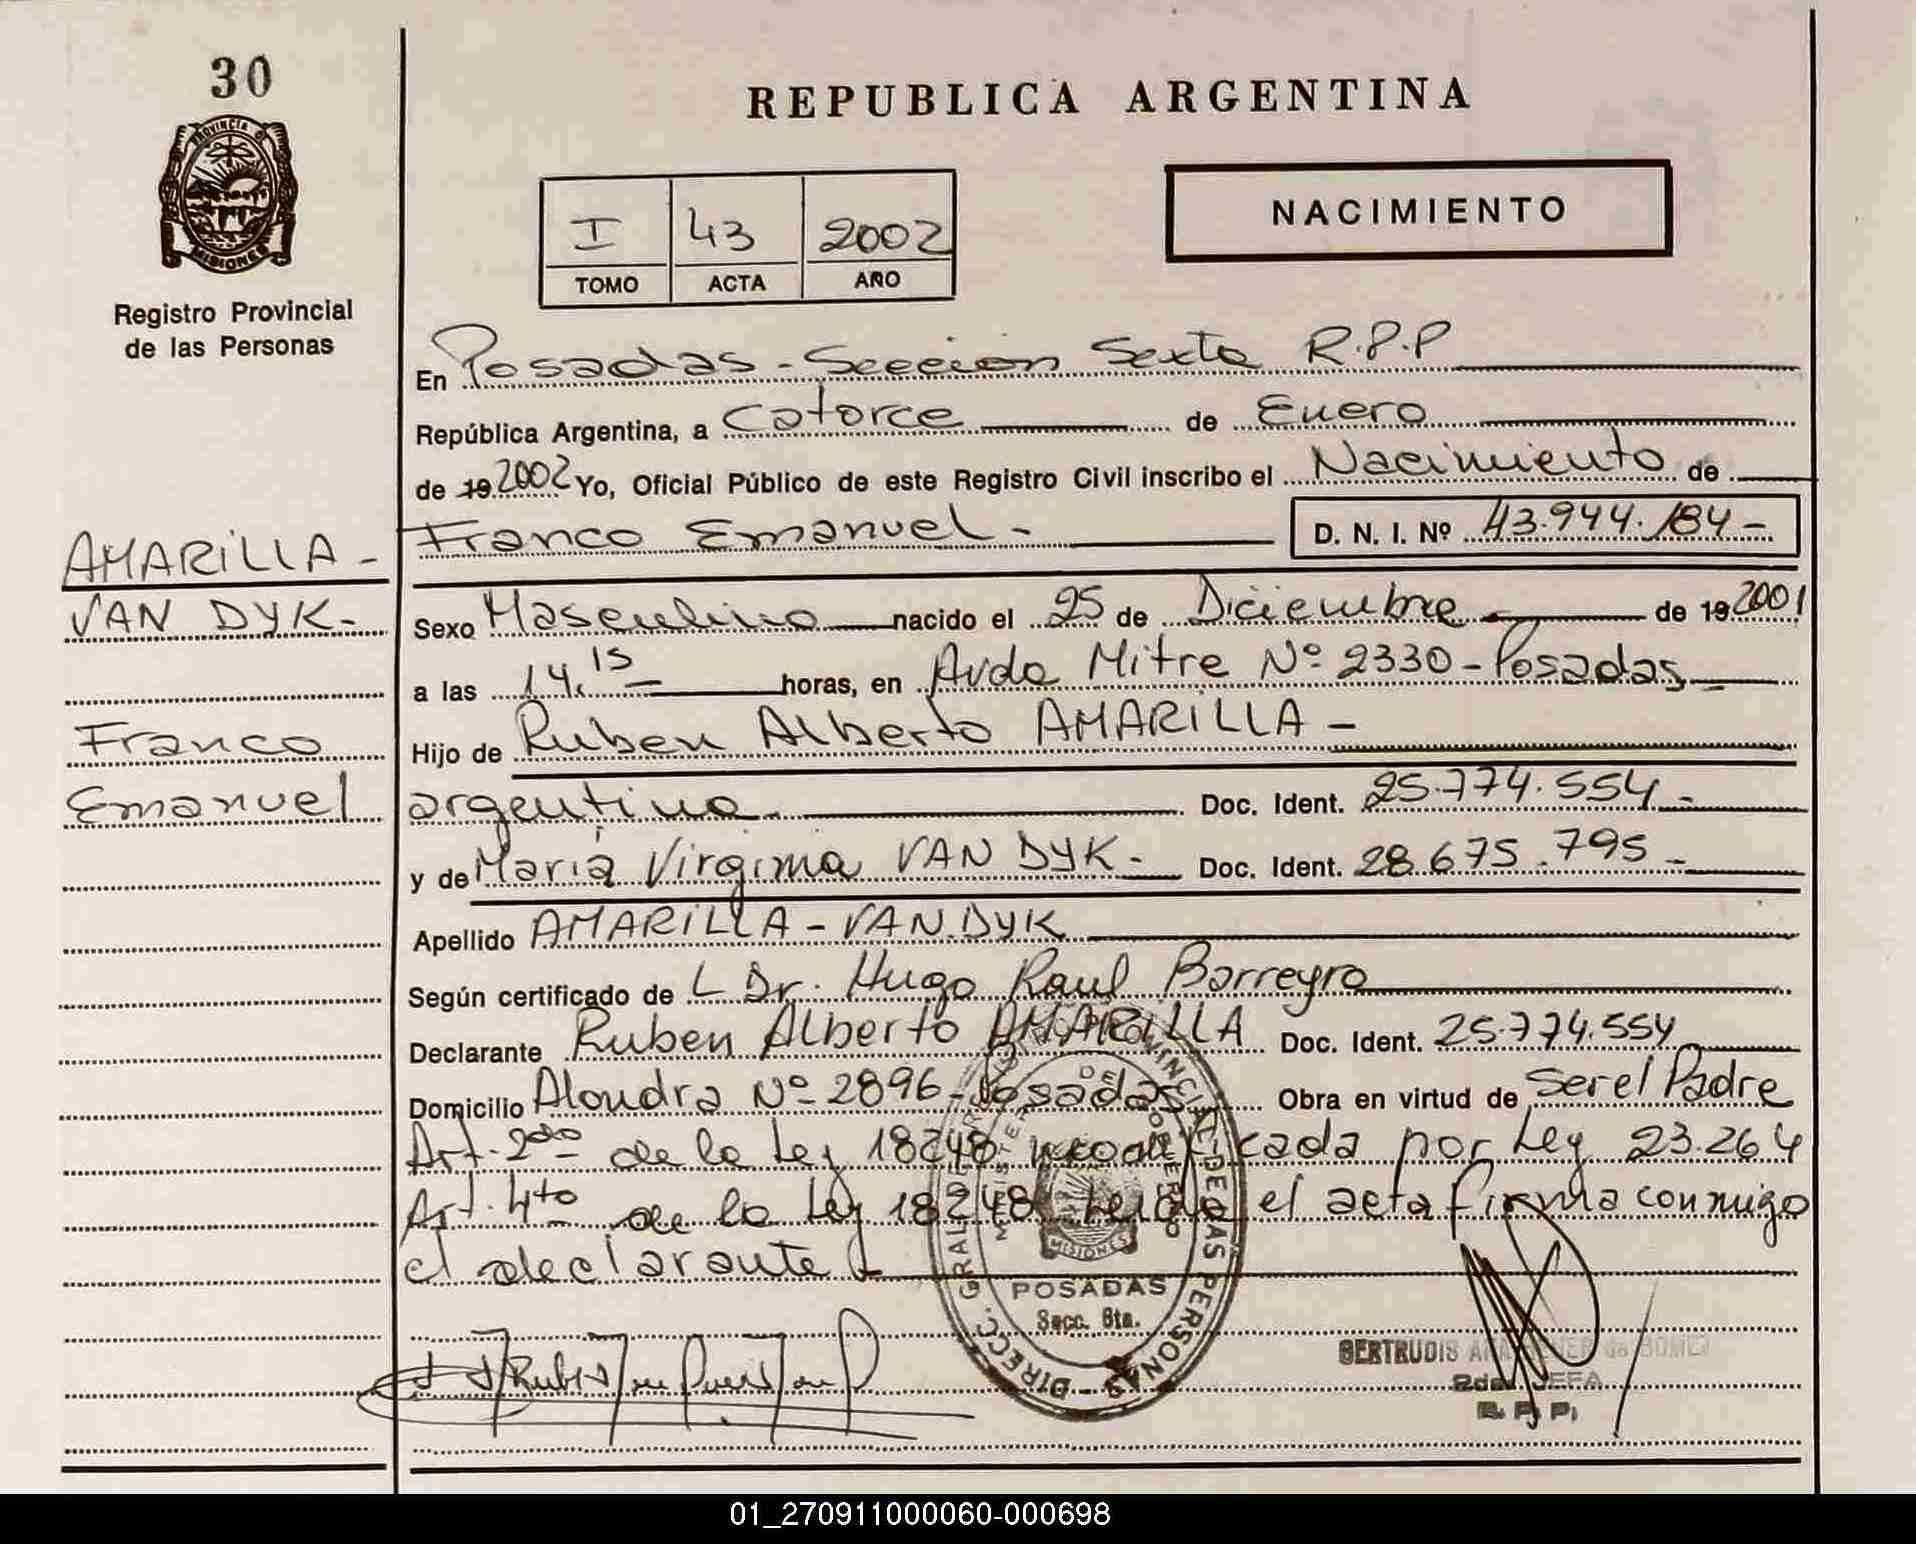 30
PROVINCIA D
MISIONES
Registro Provincial
de las Personas
REPUBLICA ARGENTINA
I 43 2002
TOMO ACTA AÑO
NACIMIENTO
En Posadas - Seccion Sexta R.P.P
República Argentina, a Catorce de Enero
de 19 2002 Yo, Oficial Público de este Registro Civil inscribo el Nacimiento de
Franco Emanuel - D. N. I. Nº 43.944.184 -
AMARILLA -
VAN DYK -
Franco
Emanuel
Sexo Masculino nacido el 25 de Diciembre de 19 2001
a las 14.15 horas, en Avda Mitre Nº 2330 - Posadas
Hijo de Ruben Alberto AMARILLA -
argentino Doc. Ident. 25.774.554 -
y de Maria Virginia VAN DYK - Doc. Ident. 28.675.795 -
Apellido AMARILLA - VAN DYK
Según certificado de L Dr. Hugo Raul Barreyro
Declarante Ruben Alberto AMARILLA Doc. Ident. 25.774.554
Domicilio Alondra Nº 2896 - Posadas Obra en virtud de Ser el Padre
Art. 2do de la Ley 18248 modificada por Ley 23.264
Art. 4to de la Ley 18248 Leida el acta firma conmigo
el declarante
DIRECC. GRAL. PROVINCIAL DE LAS PERSONAS
MINISTERIO DE GOBIERNO
MISIONES
POSADAS
Secc. 6ta.
GERTRUDIS de GOMEZ
2da. JEFA
R. P. P.
01_270911000060-000698